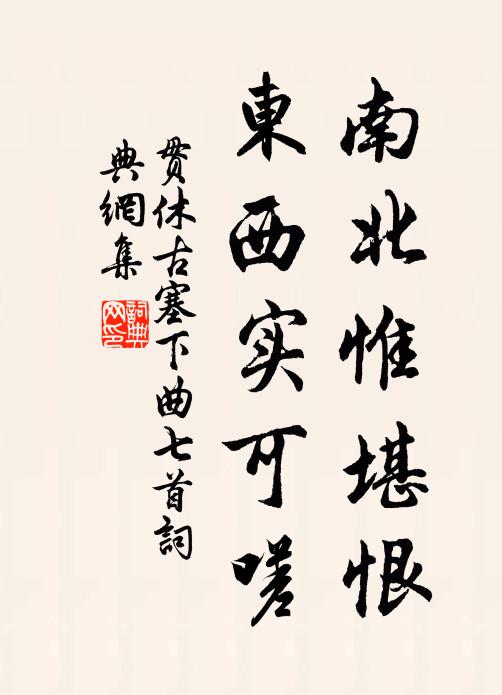 南北惟堪恨
東西实可嗟
貫休古塞下曲七首詞
典網集
詞典網印